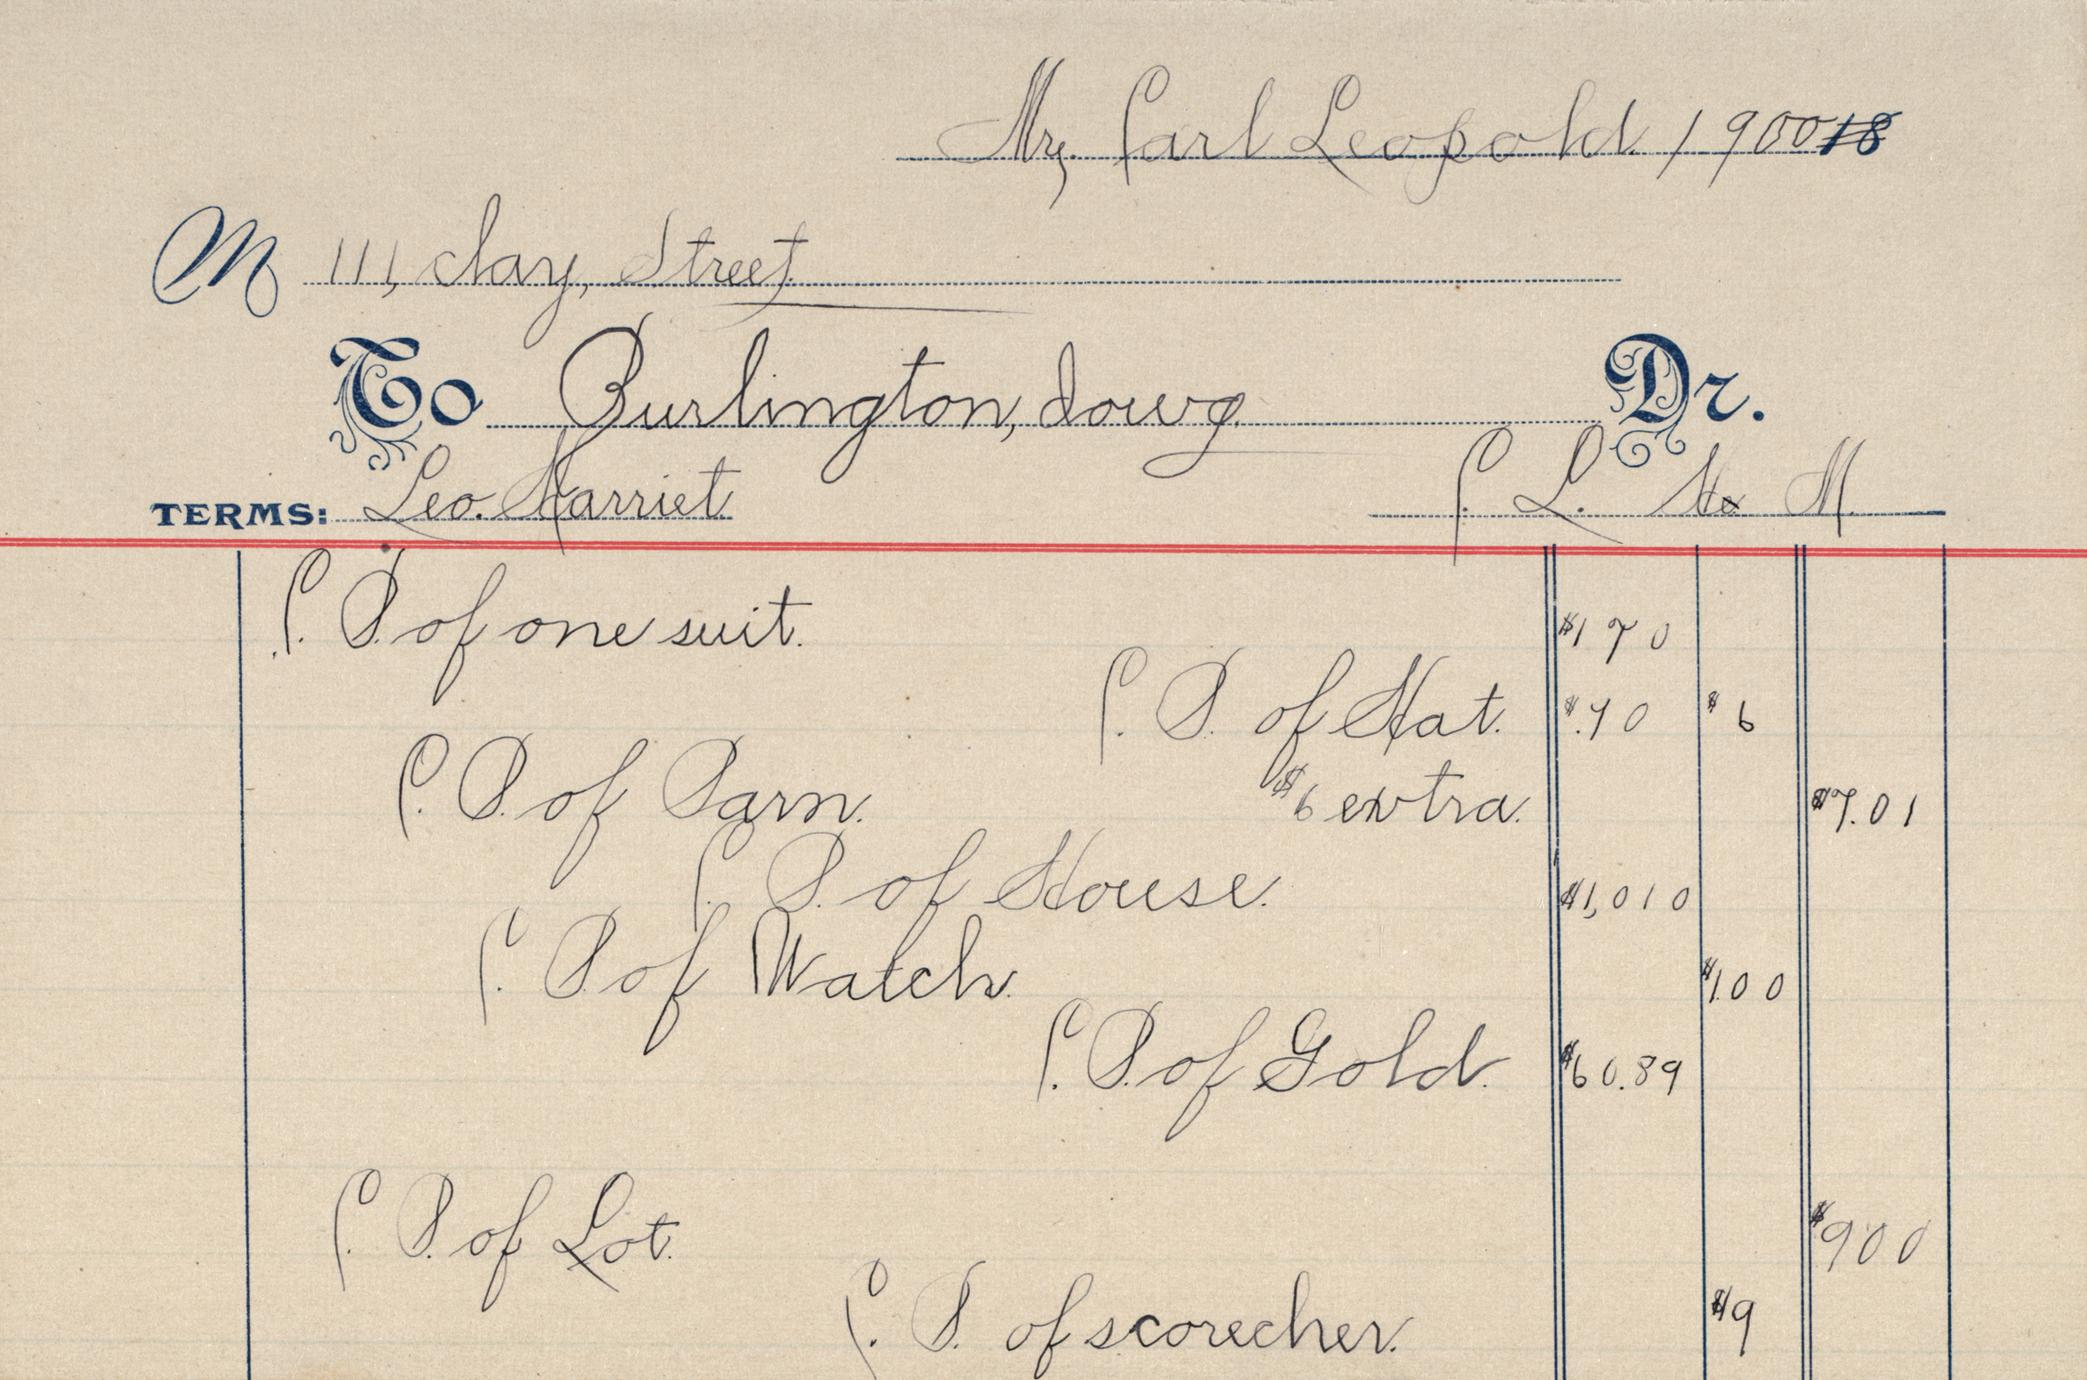 Mr. Carl Leopold. 190018
M 111, Clay, Street.
To Burlington, Iowa. Dr.
TERMS: Leo. Harriet C. L. M.
C. P. of one suit. $170
C. P. of Hat. $.70 $6
C. P. of Barn. $6 extra. $7.01
C. P. of House. $1,010
C. P. of Watch. $100
C. P. of Gold. $60.89
C. P. of Lot. $900
C. P. of scorecher. $9